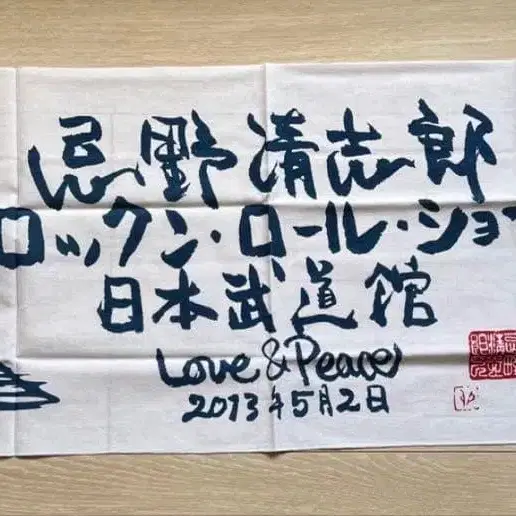 忌野清志郎
ロックン・ロール・ショー
日本武道館
Love & Peace
2013年5月2日